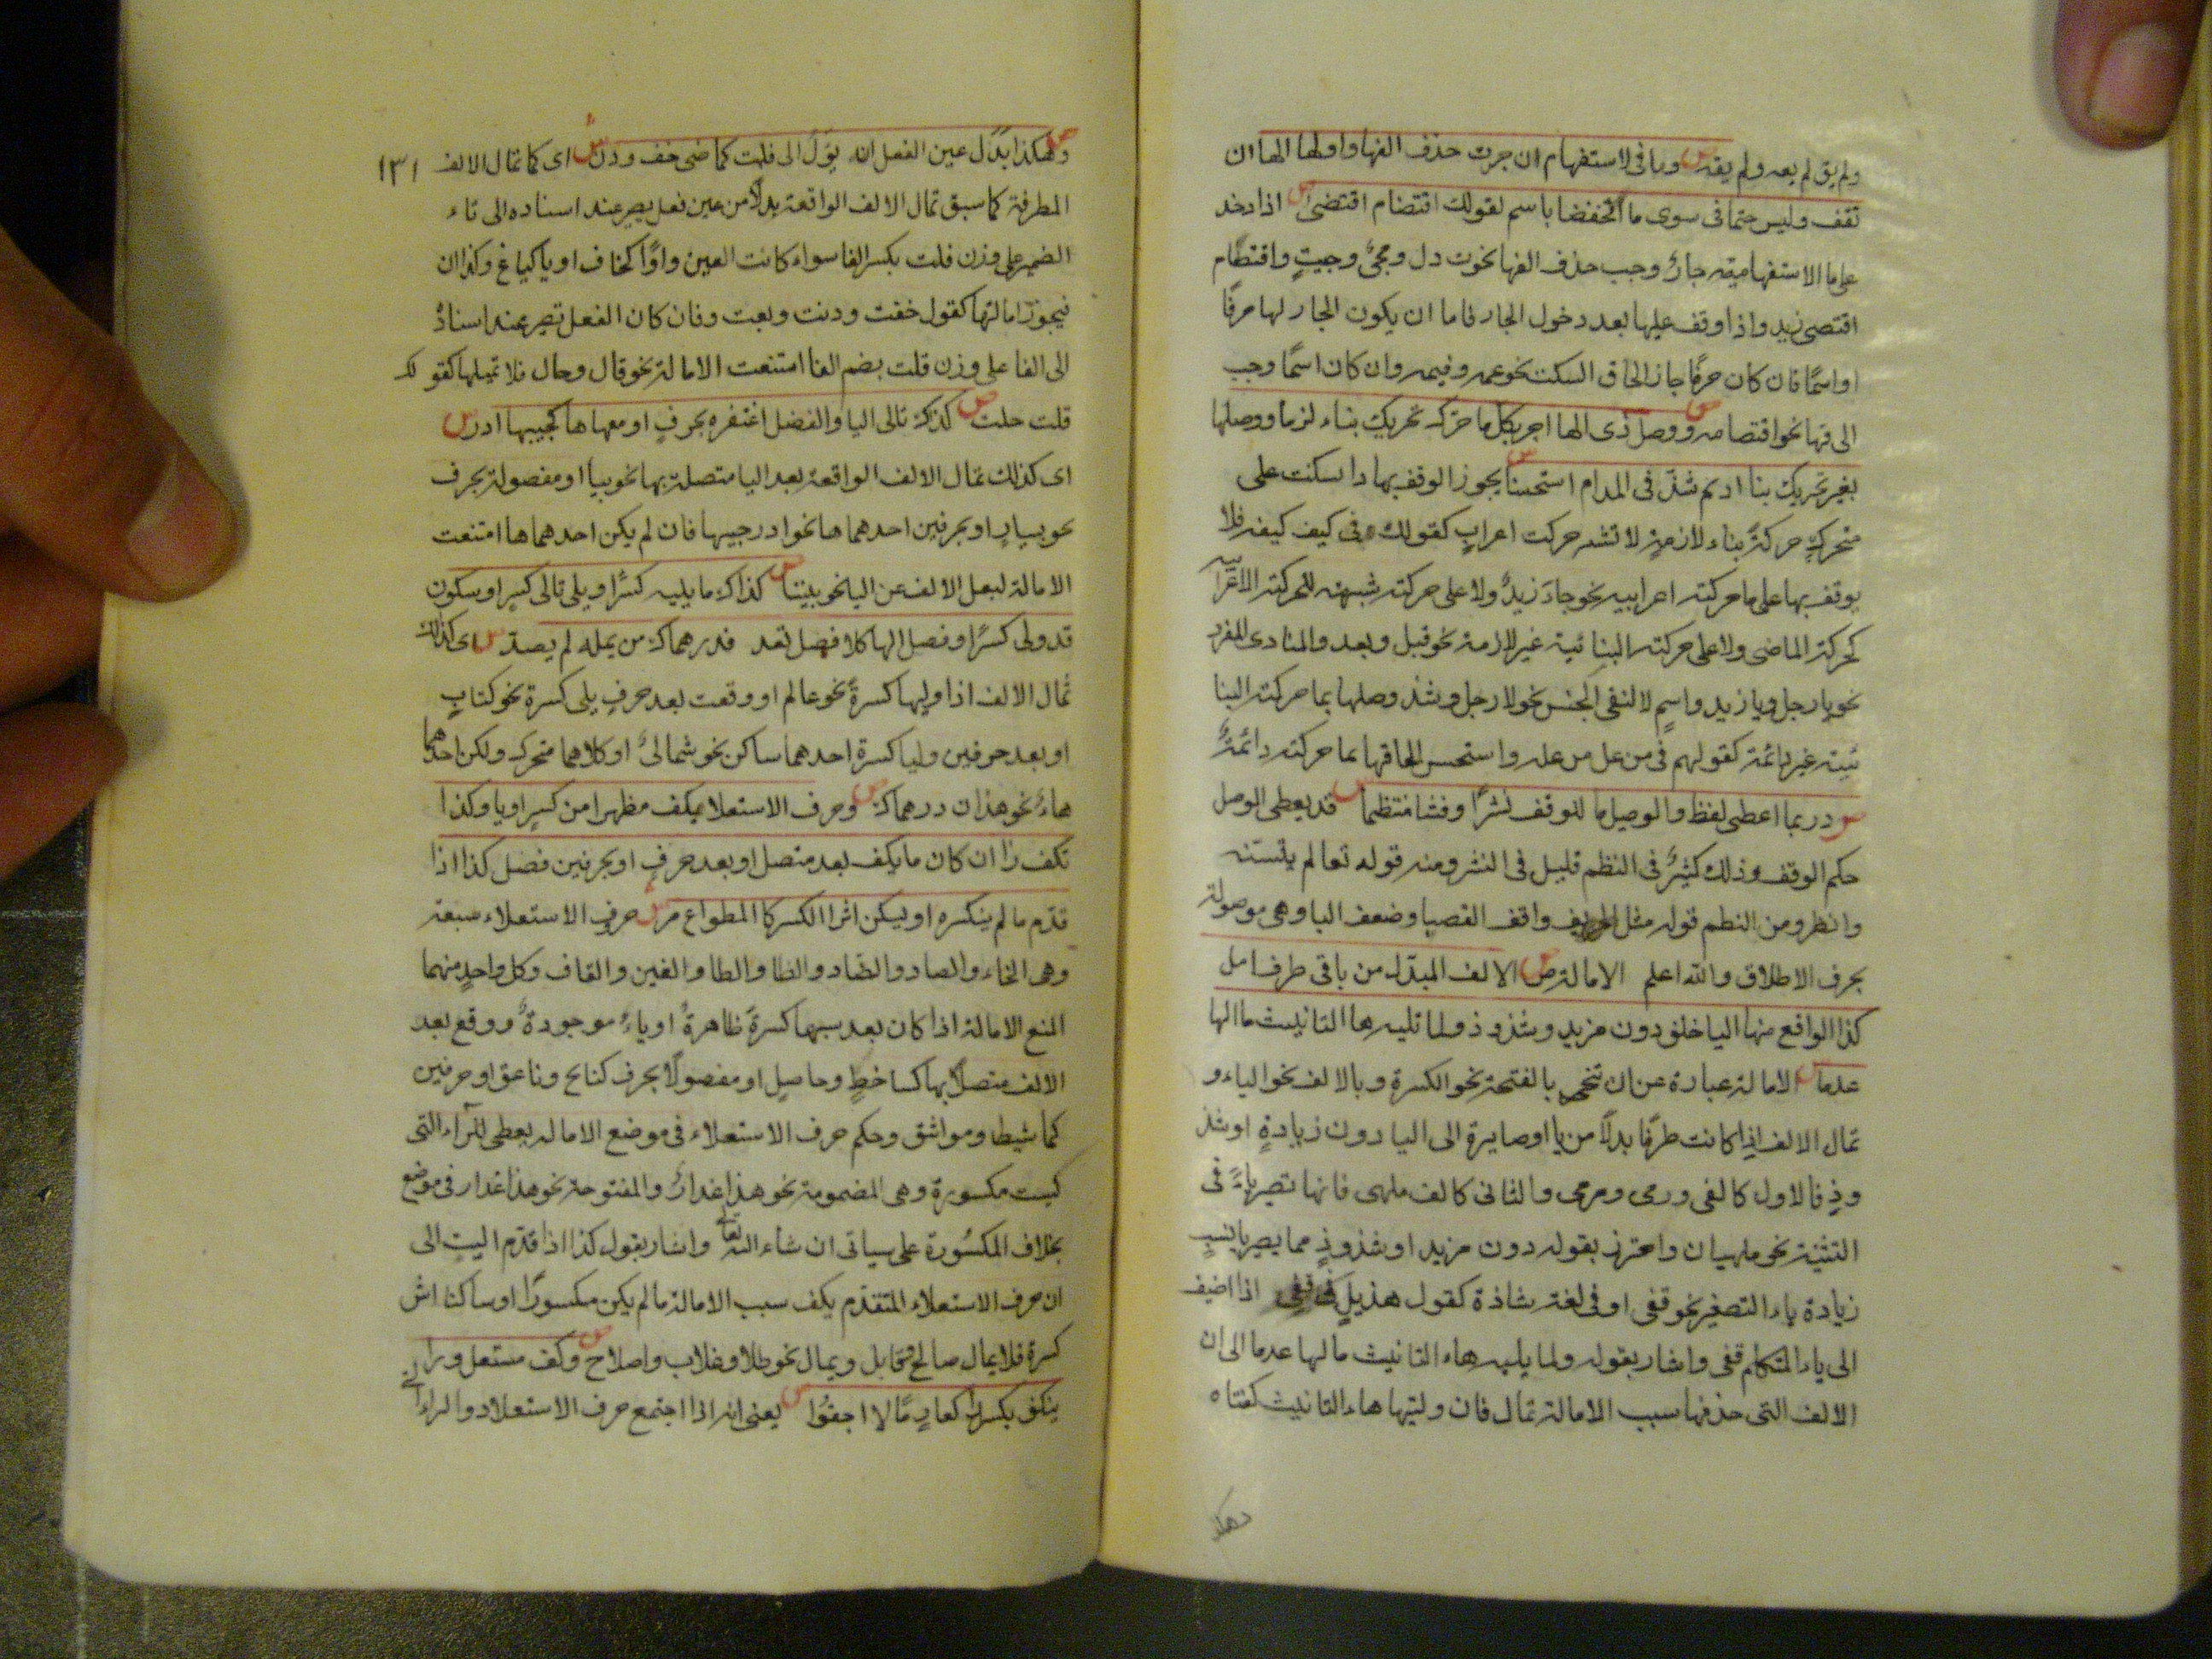 ولم يق لم يعه ولم يقه س وما فى لاستفهام ان جرت حذف الفها واولها الها ان
تقف وليس حتما فى سوى ما انخفضا باسم لقولك اقتضام اقتضى س اذا دخد
على ما الاستفهامية جارٌ وجب حذف الفها نحو دل ومجىٌ وجيتٍ واقتطام
اقتصى زيد واذا وقف عليها بعد دخول الجار فاما ان يكون الجار لها حرفًا
او اسمًا فان كان حرفًا جاز الحاق السكت نحو عمه وفيمه وان كان اسمًا وجب
الى فها نحو اقتصامه ص ووصل ذى الها اجر بكل ما حرك تحريك بناء لزما ووصلها
بغير تحريك بنا اديم شذّ فى المدام استحسنا س يجوز الوقف بها دا لسكنت على
متحركٍ حركةً بناء لازمةٍ لا تشبه حركت اعرابٍ كقولك فى كيف كيفه فلا
يوقف بها على ما حركته اعرابيه نحو جاءَ زيدٌ ولا على حركته شبهته للحركته الاعرابيه
كحركة الماضى ولا على حركته البنائية غير لازمة نحو قبل وبعد والمنادى المفرد
نحو يا رجل ويا زيد واسمٍ لا لنفى الجنس نحو لا رجل وشذ وصلها بما حركته البنا
ئيته غير دائمة كقولهم فى من عل من عله واستحسن الحاقها بما حركته دائمةٌ
ص وربما اعطى لفظ والوصيل ما للوقف نشرًا وفشا منتظما س قد يعطى الوصل
حكم الوقف وذلك كثيرٌ فى النظم قليل فى النشر ومنه قوله تعا لم يتسنه
وانظر ومن النطم قوله مثل الحريف واقف القصبا وضعف البا وهى موصولة
بحرف الاطلاق والله اعلم الامالة ص الالف المبدّل من باقى طرف امل
كذا الواقع منها اليا خلف دون مزيد وشذوذ ولما تليه ها التانيث ما الها
عدما س الامالة عبارة عن ان تنحى بالفتحة نحو الكسرة وبالالف نحو الياء و
تمال الالف اذا كانت طرفًا بدلًا من يا او صايرة الى اليا دون زيادةٍ او شذ
وذٍ فالاول كالفى ورمى ومرمى والثانى كالف ملهى فانها تصير ياءً فى
التثنية نحو ملهيان واحترز بقوله دون مزيد او شذوذٍ مما يصير يا بسبب
زيادة ياء التصغير نحو قفى او فى لغة شاذة كقول هذيلٍ فى قفى اذا اضيف
الى ياء المتكلم قفى واشار بقوله ولما يليه هاء التانيث ما لها عدما الى ان
الالف التى حذفها سبب الامالة تمال فان وليتها هاء التانيث كفتاه
وهكذا
١٣١
ص وهكذا بدّل عين الفعل ان يؤل الى فلت كما ضى خف ودن س اى كما تمال الالف
المطرفة كما سبق تمال الالف الواقعة بدلًا من عين فعل يصير عند اسناده الى تاء
الضمير على وزن فلت بكسر الفا سواء كانت العين واوًا كخاف او يا كباغ وكذا ان
فيجوز امالتها كقول خفت ودنت وبعت وفان كان الفعل تصير عند اسنادُ
الى الفا على وزن قلت بضم الفا امتنعت الامالة نحو قال وحال فلا تميلها كقولك
قلت حلت ص كذك تالى اليا والفضل اغتفره بحرفٍ او معها ها كجيبها ادر س
اى كذلك تمال الالف الواقعة بعد اليا متصلة بها نحو بيا او مفصولة بحرف
نحو بيادٍ او بحرفين احدهما ها نحو ادر جيبها فان لم يكن احدهما ها امتنعت
الامالة لبعل الالف عن اليا نحو بيتنا ص كذاك ما يليه كسرًا ويلى تالى كسرٍ او سكون
قد ولى كسرًا وفصل الها كلا فصل تعد فدرهماك من يمله لم يصد س اى كذلك
تمال الالف اذا وليها كسرةً نحو عالم او وقعت بعد حرفٍ يلى كسرة نحو كتابٍ
او بعد حرفين وليا كسرة احدهما ساكن نحو شمالىٌ او كلاهما متحرك ولكن احدهما
هاءٌ نحو هذان درهماك ص وحرف الاستعلا يكف مظهرا من كسرٍ او يا وكذا
تكف را ان كان ما يكف بعد متصل او بعد حرفٍ او بحرفين فصل كذا اذا
قدّم ما لم ينكسر او ليكن اثرا الكسر كا المطواع مر س حرف الاستعلاء سبعة
وهى الخاء والصاد والضاد والظا والطا والغين والقاف وكل واحدٍ منهما
المنع الامالة اذا كان بعد سببها كسرةً ظاهرةٌ او ياءٌ موجودةٌ ووقع بعد
الالف متصلًا بها كساخطٍ وحاصلٍ او مفصولًا بحرف كنافخ وناعق او حرفين
كما شيطا ومواثق وحكم حرف الاستعلاء فى موضع الامالة يعطى للرآء التى
ليست مكسورة وهى المضمومة نحو هذا غدارٌ والمفتوحة نحو هذا غدار فى موضع
بخلاف المكسورة على سياتى ان شاء الله تعالى واشار بقول كذا اذا قدّم البيت الى
ان حرف الاستعلاء المتقدّم يكف سبب الامالة ما لم يكن مكسورًا او ساكنا اثر
كسرة فلا يمال صالح وقابل ويمال نحو طلاب وغلاب واصلاح ص وكف مستعل ورا
ينكف بكسر را كعادٍ مًا لا اجفُوا س يعنى انه اذا اجتمع حرف الاستعلاد والراء